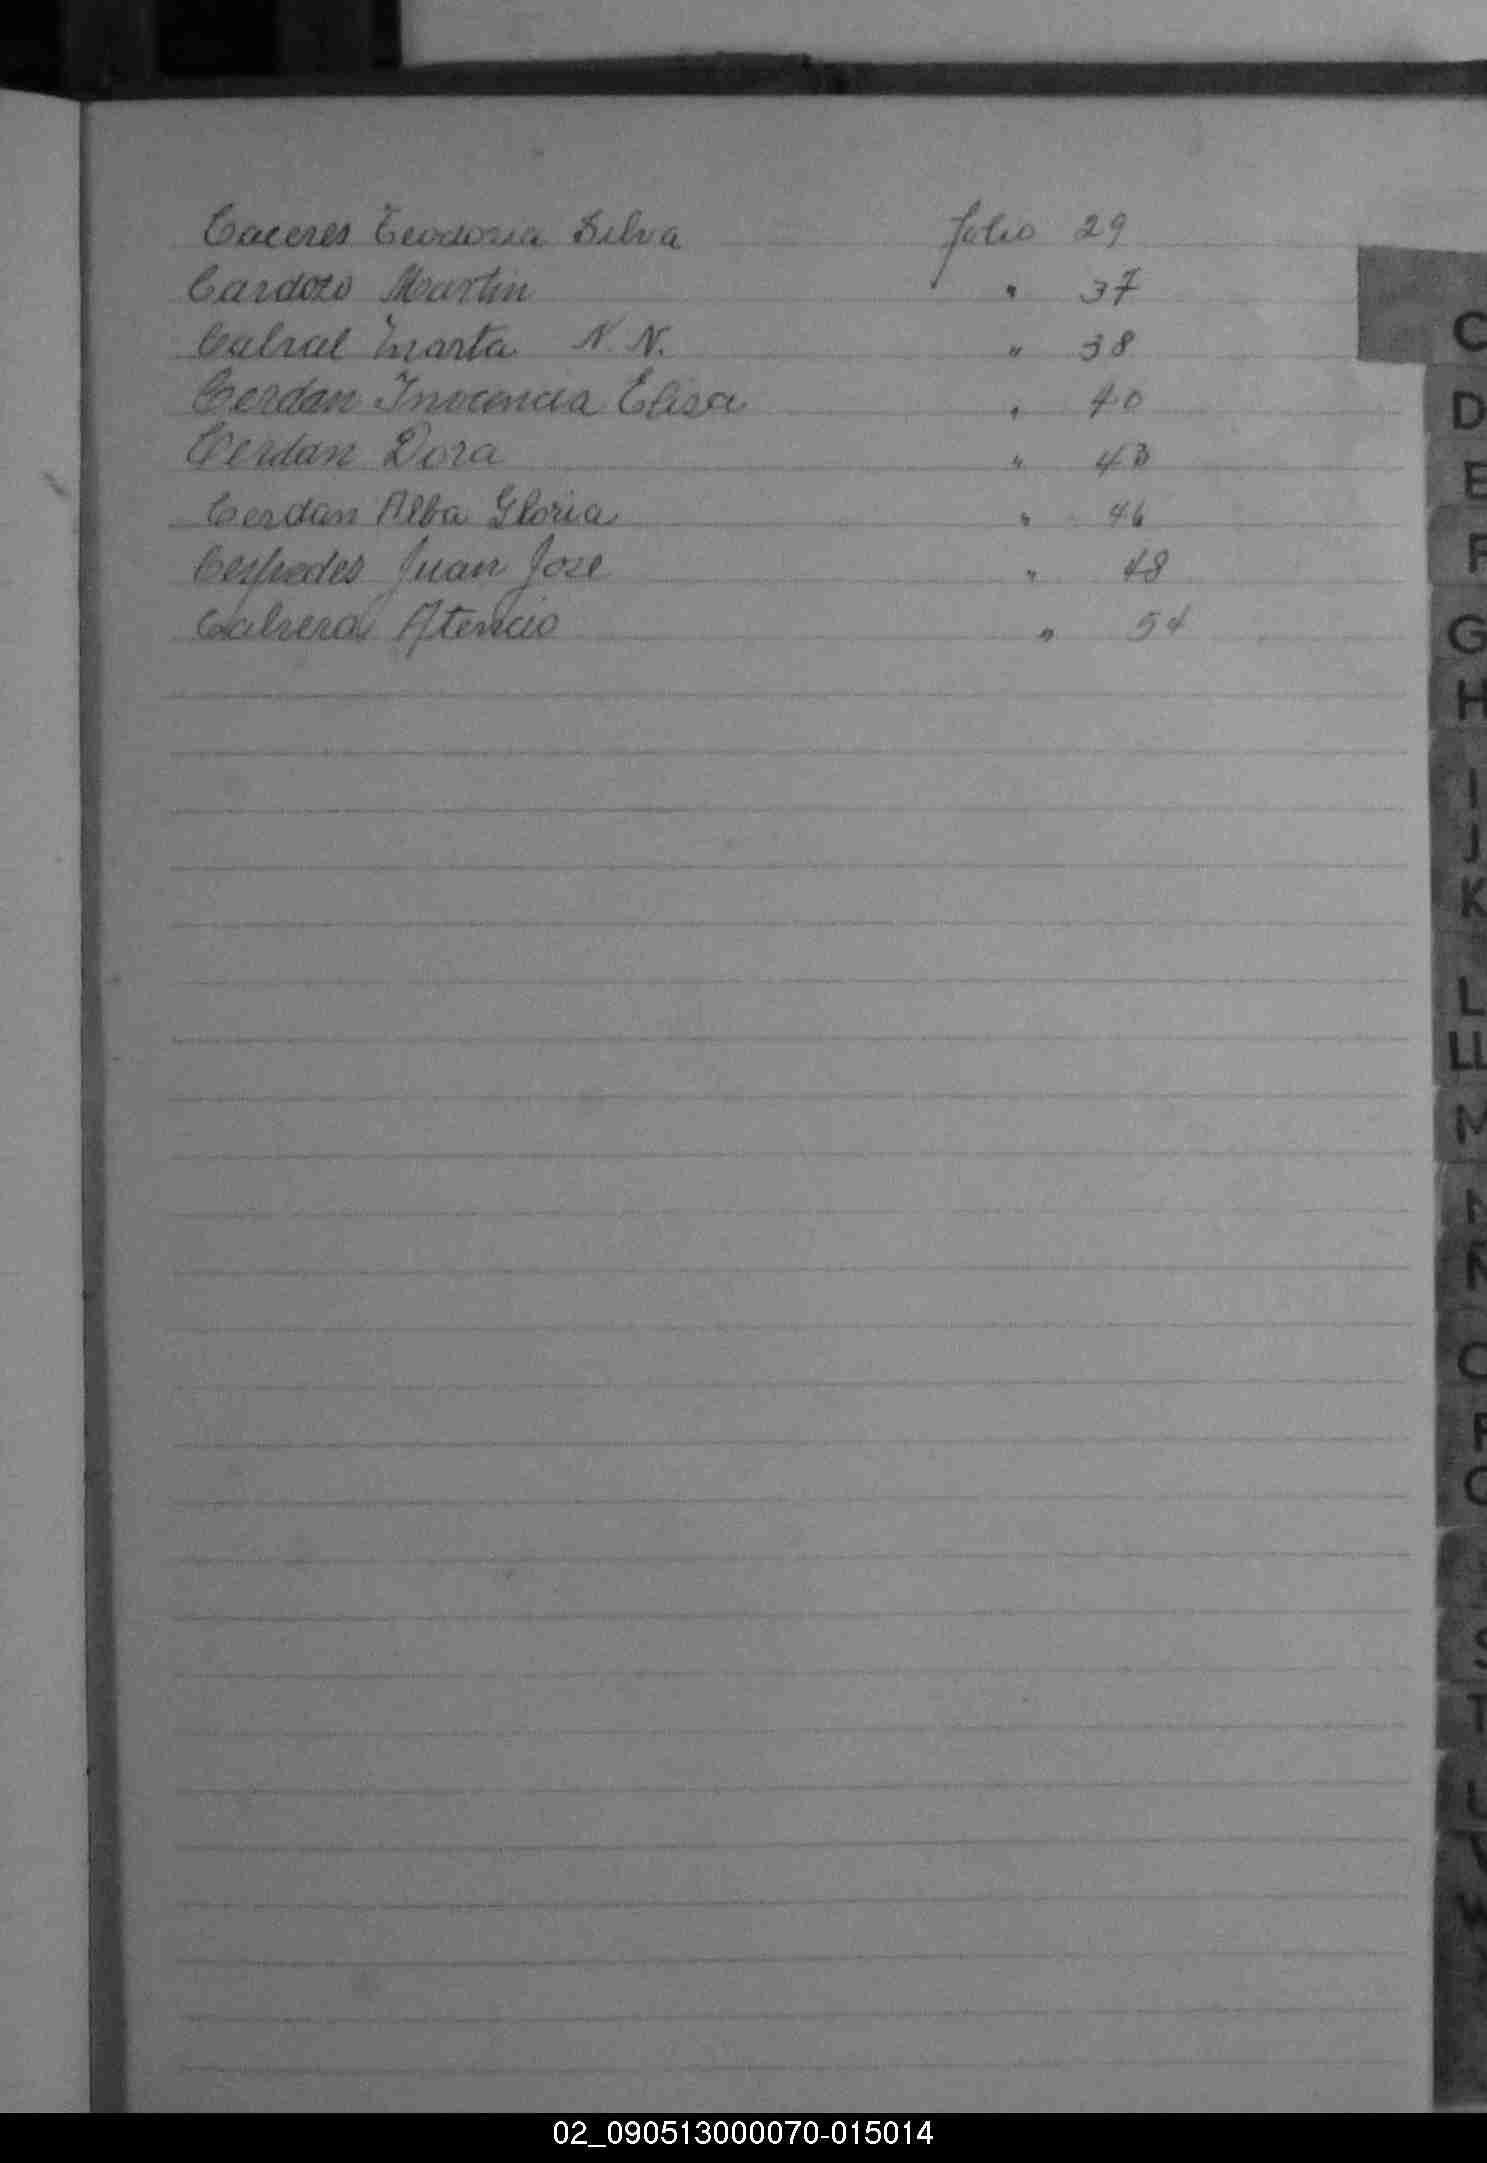 Caceres Teodoria Silva folio 29
Cardozo Martin " 37
Cabral Marta N. N. " 38
Cerdan Inocencia Elisa " 40
Cerdan Dora " 43
Cerdan Alba Gloria " 46
Cespedes Juan Jose " 48
Cabrera Atencio " 54
C
D
E
F
G
H
I
J
K
L
LL
M
N
Ñ
O
P
Q
S
T
U
V
W
02_090513000070-015014